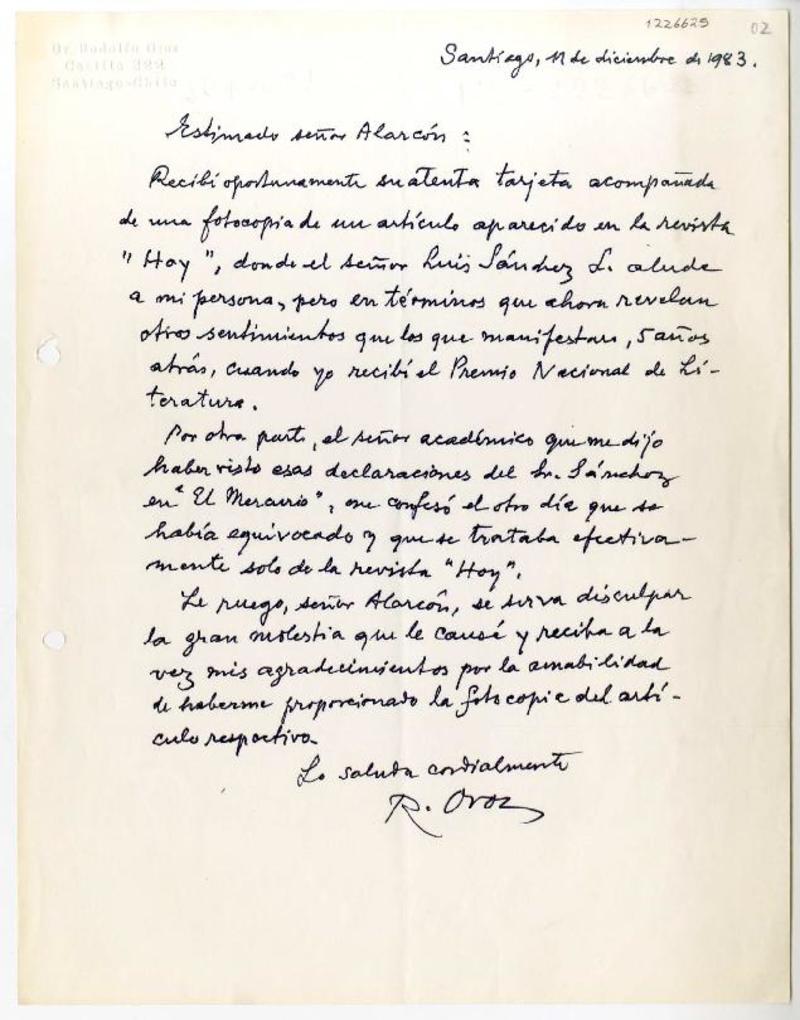 1226625 02
Dr. Rodolfo Oroz
Casilla 222
Santiago-Chile
Santiago, 11 de diciembre de 1983.
Estimado señor Alarcón :
Recibí oportunamente su atenta tarjeta acompañada
de una fotocopia de un artículo aparecido en la revista
"Hoy", donde el señor Luis Sánchez L. alude
a mi persona, pero en términos que ahora revelan
otros sentimientos que los que manifestara, 5 años
atrás, cuando yo recibí el Premio Nacional de Li-
teratura.
Por otra parte, el señor académico que me dijo
haber visto esas declaraciones del Sr. Sánchez
en "El Mercurio", me confesó el otro día que se
había equivocado y que se trataba efectiva-
mente solo de la revista "Hoy".
Le ruego, señor Alarcón, se sirva disculpar
la gran molestia que le causé y reciba a la
vez mis agradecimientos por la amabilidad
de haberme proporcionado la fotocopia del artí-
culo respectivo.
Lo saluda cordialmente
R. Oroz